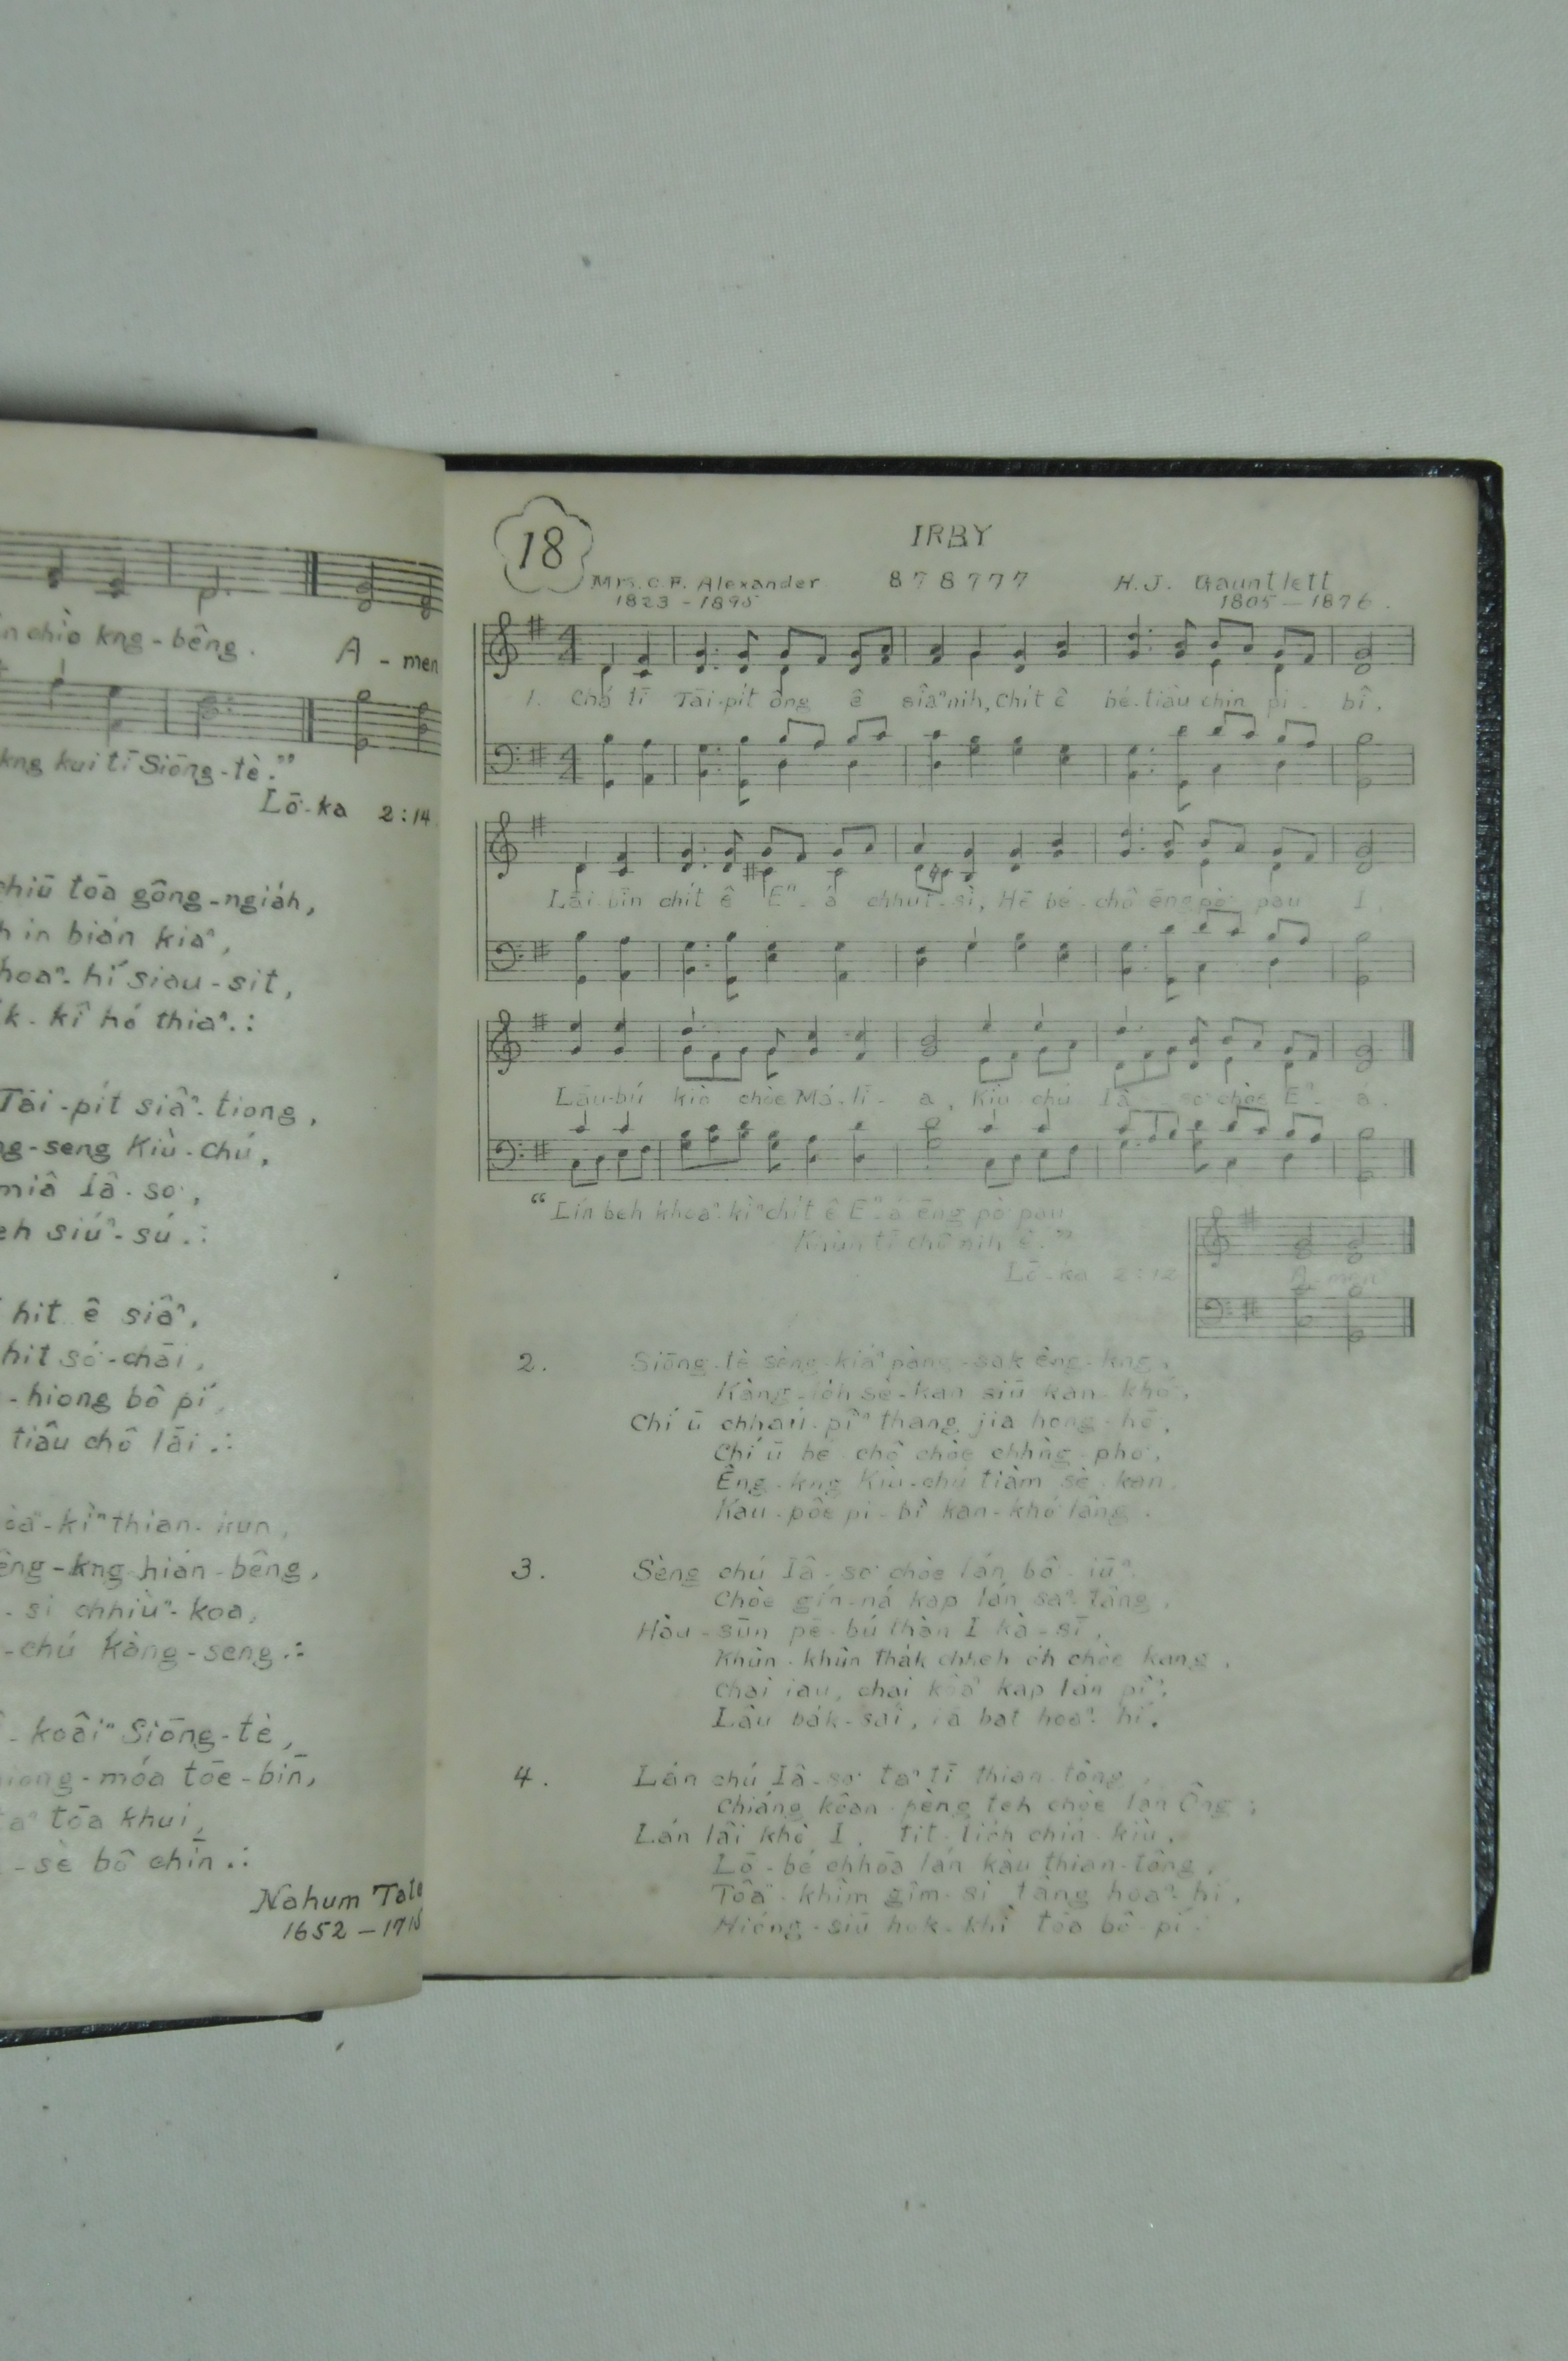 chìo kng - bêng.
A - men
kng kui tī Siōng - tè."
Lō͘ - ka 2 : 14
tōa gông - ngiáh,
in bián kiaⁿ,
hí siau - sit,
kî hó thiaⁿ.:
Tāi - pit siâⁿ - tiong,
seng Kiù - Chú,
miâ Iâ - so͘,
siúⁿ - sú.:
hit ê siâⁿ,
hit só͘ - chāi,
- hiong bô pí,
tiâu chô lāi.:
kìⁿ thian - kun,
êng - kng hián - bêng,
- sî chhiùⁿ - koa,
- chú kàng - seng.:
koâiⁿ Siōng - tè,
móa tōe - bīn,
tōa khui,
- sè bô chīn.:
Nahum Tate
1652 -
18
IRBY
Mrs. C. F. Alexander 8 7 8 7 7 7 H. J. Gauntlett
1823 - 1895 1805 — 1876.
1. Chá tī Tāi - pit ông ê siâⁿ nih, Chit ê bé - tiâu chin pi - bî,
Lāi - bīn chit ê Eⁿ - á chhut - sì, Hē bé - chô ēng pò͘ pau I,
Lāu - bú kiò chòe Má - lī - a, Kiù chú Iâ - so͘ chòe Eⁿ - á.
"Lín beh khoàⁿ - kìⁿ chit ê Eⁿ - á ēng pò͘ pau
Khùn tī chô nih ê."
Lō͘ - ka 2 : 12
A - men
2. Siōng - tè sèng - kiáⁿ pàng - sak êng - kng,
Kàng - lóh sè - kan siū kan - khó͘,
Chí ū chháu - pîⁿ thang jia hong - hō͘,
Chí ū bé - chô chòe chhn̂g - pho͘,
Êng - kng Kiù - chú tiàm sè - kan,
Kau - pôe pi - bî kan - khó͘ lâng.
3. Sèng chú Iâ - so͘ chòe lán bô - iūⁿ,
Chòe gín - ná kap lán saⁿ - tâng,
Hàu - sūn pē - bú thàn I kà - sī,
Khùn - khùn thák chheh óh chòe kang,
Chai iau, chai kôaⁿ kap lán pîⁿ,
Lâu bák - sái, iā bat hoaⁿ - hí.
4. Lán chú Iâ - so͘ taⁿ tī thian - tông,
Chiáng kôan - pèng teh chòe lán Ông;
Lán lâi khò I, tit - tióh chín - kiù,
Lō͘ - bé chhōa lán kàu thian - tông,
Tôaⁿ - khîm gîm - si tàng hoaⁿ - hí,
Hióng - siū hok - khì tōa bô - pí.